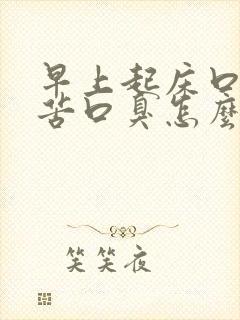 早上起床口
苦口臭怎麼
笑笑夜